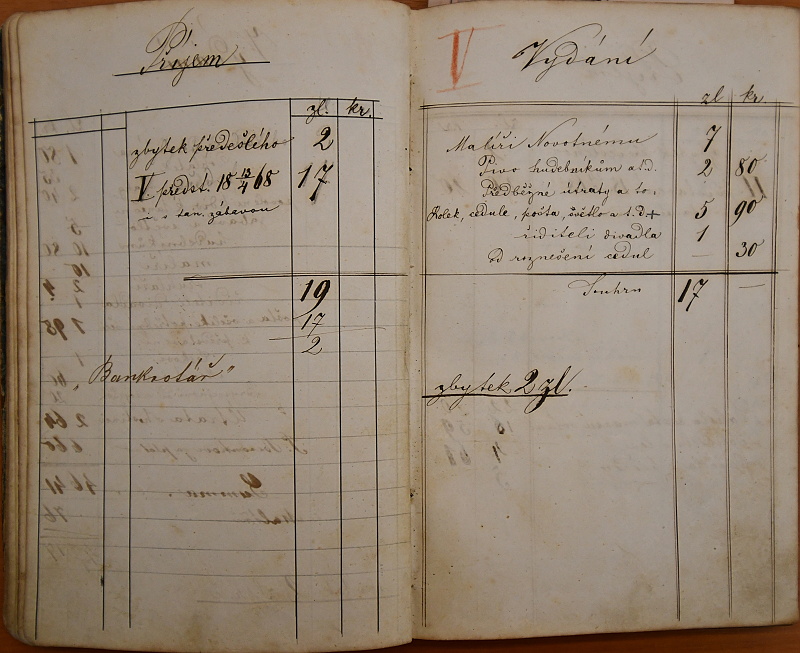 Příjem
zl. kr.
zbytek předešlého 2
V předst. 18 13/4 68 17
s tan. zábavou
19
17
2
„Bankrotář"
V
Vydání
zl kr.
Malíři Novotnému 7
Pivo hudebníkům a t.d. 2 80
Předběžné útraty a to,
Kolek, cedule, pošta, světlo a t.d. 5 90
řiditeli divadla 1
od roznešení cedul — 30
Souhrn 17 —
zbytek 2 zl.